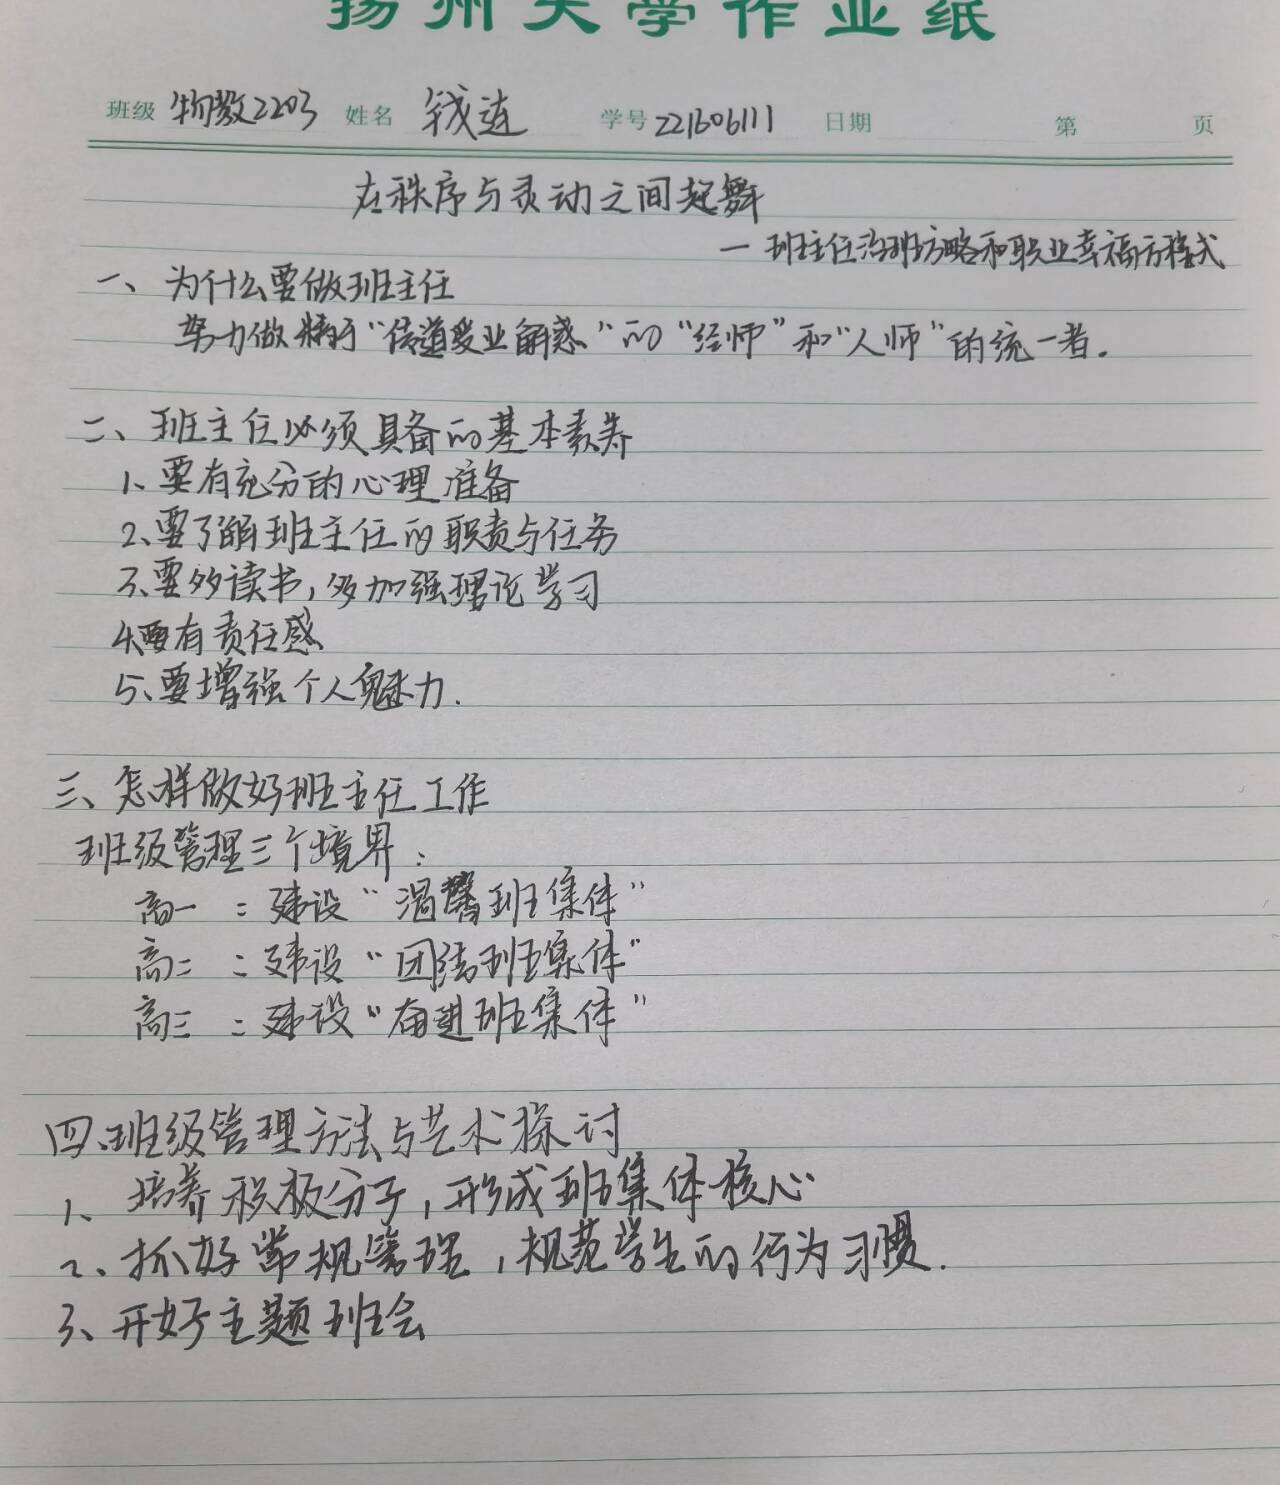 扬州大学作业纸
班级 物教2203 姓名 钱涟 学号 221606111 日期 第 页
在秩序与灵动之间起舞
— 班主任治班方略和职业幸福方程式
一、为什么要做班主任
努力做精于“传道受业解惑”的“经师”和“人师”的统一者.
二、班主任必须具备的基本素养
1、要有充分的心理准备
2、要了解班主任的职责与任务
3、要多读书,多加强理论学习
4、要有责任感
5、要增强个人魅力.
三、怎样做好班主任工作
班级管理三个境界:
高一:建设“温馨班集体”
高二:建设“团结班集体”
高三:建设“奋进班集体”
四、班级管理方法与艺术探讨
1、培养积极分子,形成班集体核心
2、抓好常规管理,规范学生的行为习惯.
3、开好主题班会